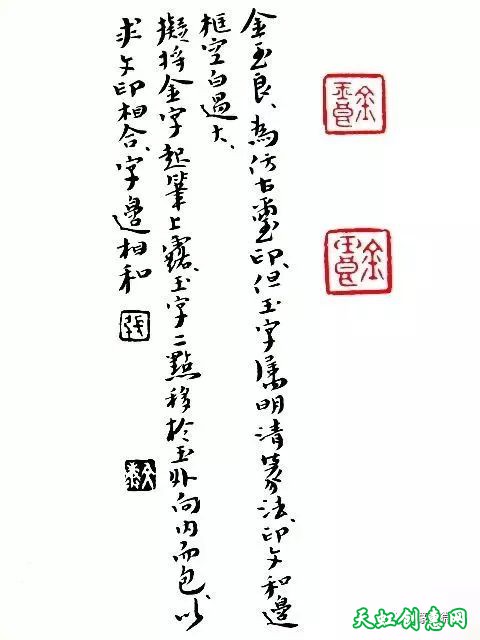 金玉良、為仿古璽印、但玉字屬明清篆法、印文和邊
框空白過大、
擬將金字起筆上露、玉字二點移於玉外向内而包、以
求文印相合、字邊相和
金玉良
金玉良
天虹创意网